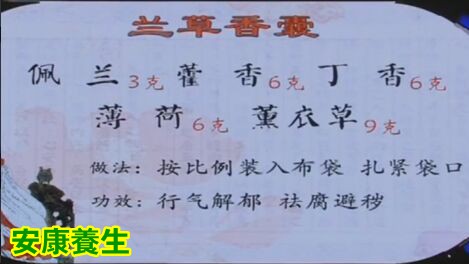 兰草香囊
佩兰3克 藿香6克 丁香6克
薄荷6克 薰衣草9克
做法：按比例装入布袋 扎紧袋口
功效：行气解郁 祛腐避秽
安康養生